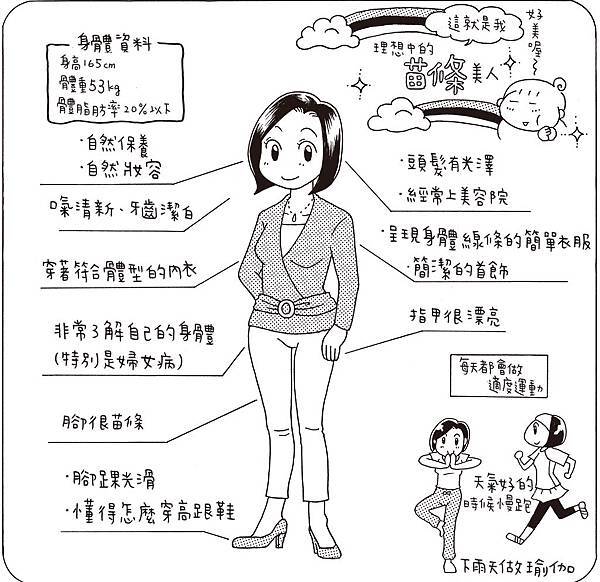 身體資料
身高165cm
體重53kg
體脂肪率20%以下
這就是我
理想中的
苗條美人
好美喔～
・自然保養
・自然妝容
口氣清新、牙齒潔白
穿著符合體型的內衣
非常了解自己的身體
(特別是婦女病)
腳很苗條
・腳踝光滑
・懂得怎麼穿高跟鞋
・頭髮有光澤
・經常上美容院
・呈現身體線條的簡單衣服
・簡潔的首飾
指甲很漂亮
每天都會做
適度運動
天氣好的
時候慢跑
下雨天做瑜伽